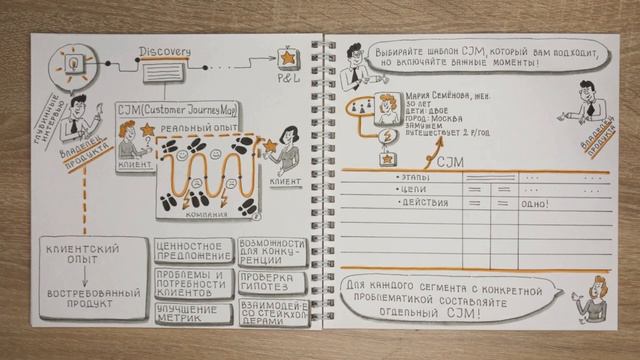 Discovery
P&L
ГЛУБИННЫЕ
ИНТЕРВЬЮ
ВЛАДЕЛЕЦ
ПРОДУКТА
CJM (Customer Journey Map)
РЕАЛЬНЫЙ ОПЫТ
КЛИЕНТ
КЛИЕНТ
КОМПАНИЯ
КЛИЕНТСКИЙ
ОПЫТ
ВОСТРЕБОВАННЫЙ
ПРОДУКТ
ЦЕННОСТНОЕ
ПРЕДЛОЖЕНИЕ
ВОЗМОЖНОСТИ
ДЛЯ КОНКУ-
РЕНЦИИ
ПРОБЛЕМЫ И
ПОТРЕБНОСТИ
КЛИЕНТОВ
ПРОВЕРКА
ГИПОТЕЗ
УЛУЧШЕНИЕ
МЕТРИК
ВЗАИМОДЕЙ-Е
СО СТЕЙКХОЛ-
ДЕРАМИ
ВЫБИРАЙТЕ ШАБЛОН CJM, КОТОРЫЙ ВАМ ПОДХОДИТ,
НО ВКЛЮЧАЙТЕ ВАЖНЫЕ МОМЕНТЫ!
МАРИЯ СЕМЁНОВА, ЖЕН.
30 ЛЕТ
ДЕТИ: ДВОЕ
ГОРОД: МОСКВА
ЗАМУЖЕМ
ПУТЕШЕСТВУЕТ 2 Р/ГОД
ВЛАДЕЛЕЦ
ПРОДУКТА
CJM
• ЭТАПЫ
• ЦЕЛИ
• ДЕЙСТВИЯ
ОДНО!
ДЛЯ КАЖДОГО СЕГМЕНТА С КОНКРЕТНОЙ
ПРОБЛЕМАТИКОЙ СОСТАВЛЯЙТЕ
ОТДЕЛЬНЫЙ CJM!